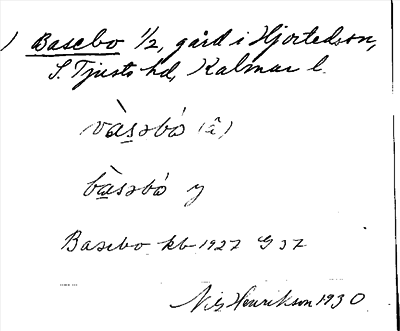 ) Basebo 1/2, gård i Hjortedson,
S. Tjusts hd, Kalmar l.
và̱səbò (â)
bà̱səbò y
Basebo kb 1927 G 37
Nils Henrikson 1930